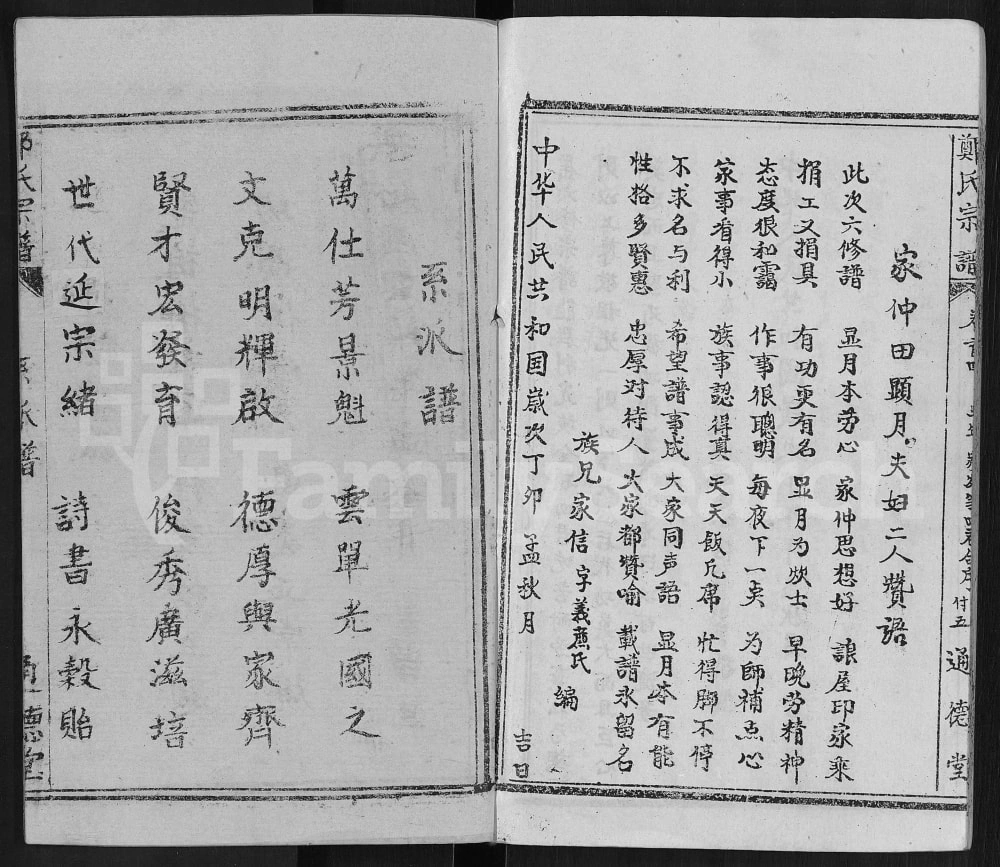 鄭氏宗譜
通德堂
家仲田顕月夫妇二人贊語
此次六修譜 显月本劳心 家仲思想好 讓屋印家乘
捐工又捐具 有功更有名 显月为炊士 早晚劳精神
态度很和靄 作事很聰明 每夜下一矣 为師補点心
家事看得小 族事認得真 天天飯几席 忙得腳不停
不求名与利 希望譜事成 大家同声語 显月本有能
性格多賢惠 忠厚对待人 大家都贊喻 載譜永留名
族兄家信字義應氏 編
中华人民共和国歲次丁卯孟秋月 吉日
系派譜
萬仕芳景魁 雲單光國之
文克明輝啟 德厚興家齊
賢才宏發育 俊秀廣滋培
世代延宗緒 詩書永穀貽
FamilySearch